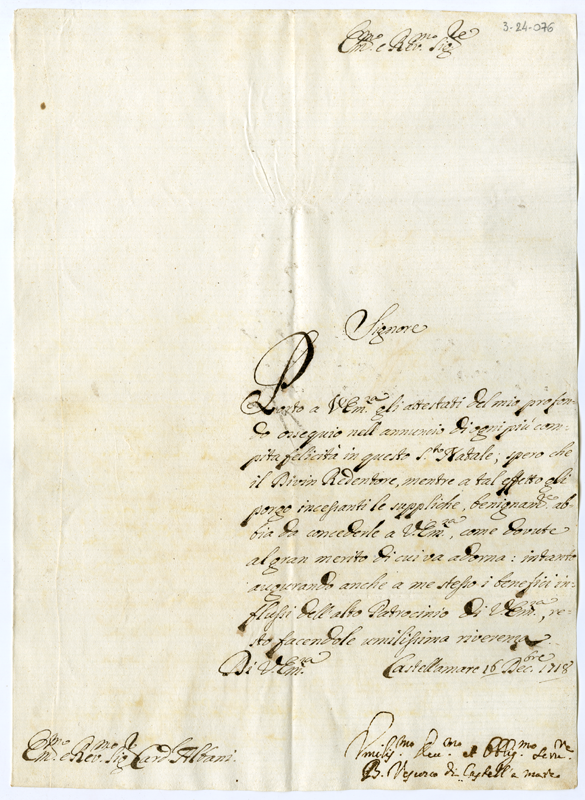 3-24-076
Em.mo e Rev.mo Sig.re
Signore
Porto a V.Em.za gli attestati del mio profon-
do ossequio nell annuncio di ogni più com-
pita felicità in questo S.to Natale; spero che
il Divin Redentore, mentre a tal effetto gli
porgo incessanti le suppliche, benignam.te ab-
bia da concederle a V.Em.za, come dovute
al gran merito di cui va adorna: intanto
augurando anche a me stesso i benefici in-
flussi dell'alto Patrocinio di V.Em.za, re-
sto facendole umilissima riverenza
Di V.Em.za Castellamare 16 Dec.bre 1718
Em.mo e Rev.mo Sig.r Card. Albani.
Umiliss.mo Dev.mo et Obblig.mo Serv.re
B. Vescovo di Castell a mare